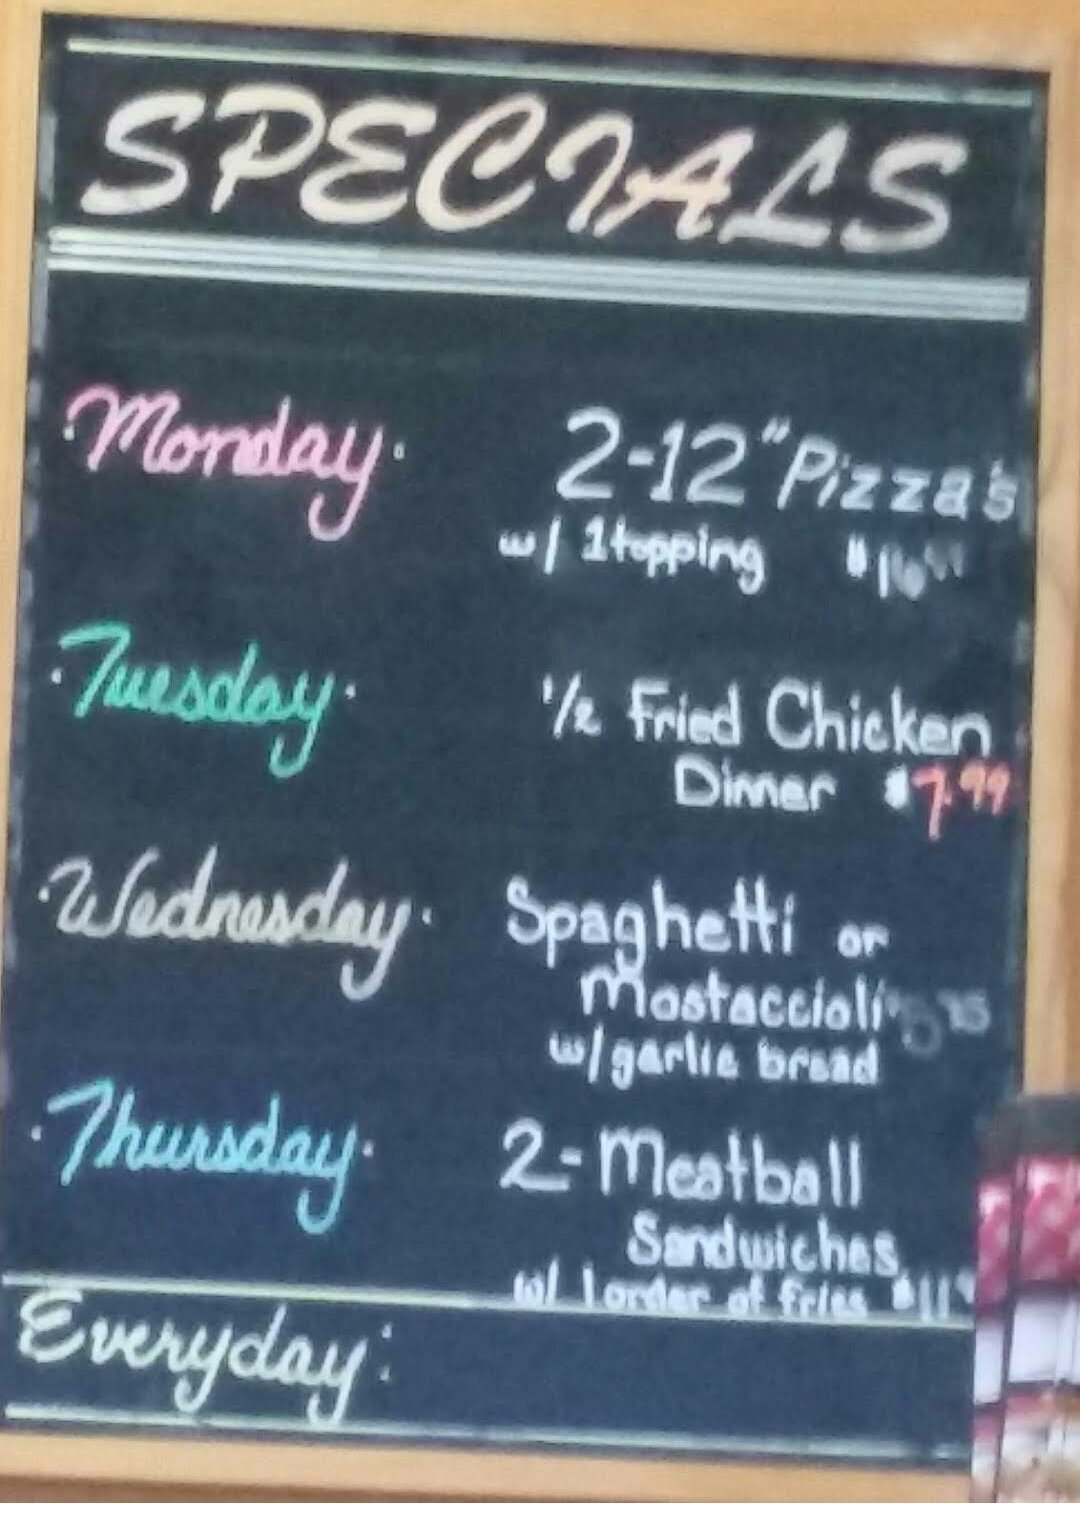 SPECIALS
·Monday· 2-12" Pizza's
w/ 1 topping
·Tuesday· 1/2 Fried Chicken
Dinner $7.99
·Wednesday· Spaghetti or
Mostaccioli
w/ garlic bread
·Thursday· 2-Meatball
Sandwiches
w/ 1 order of fries
Everyday: